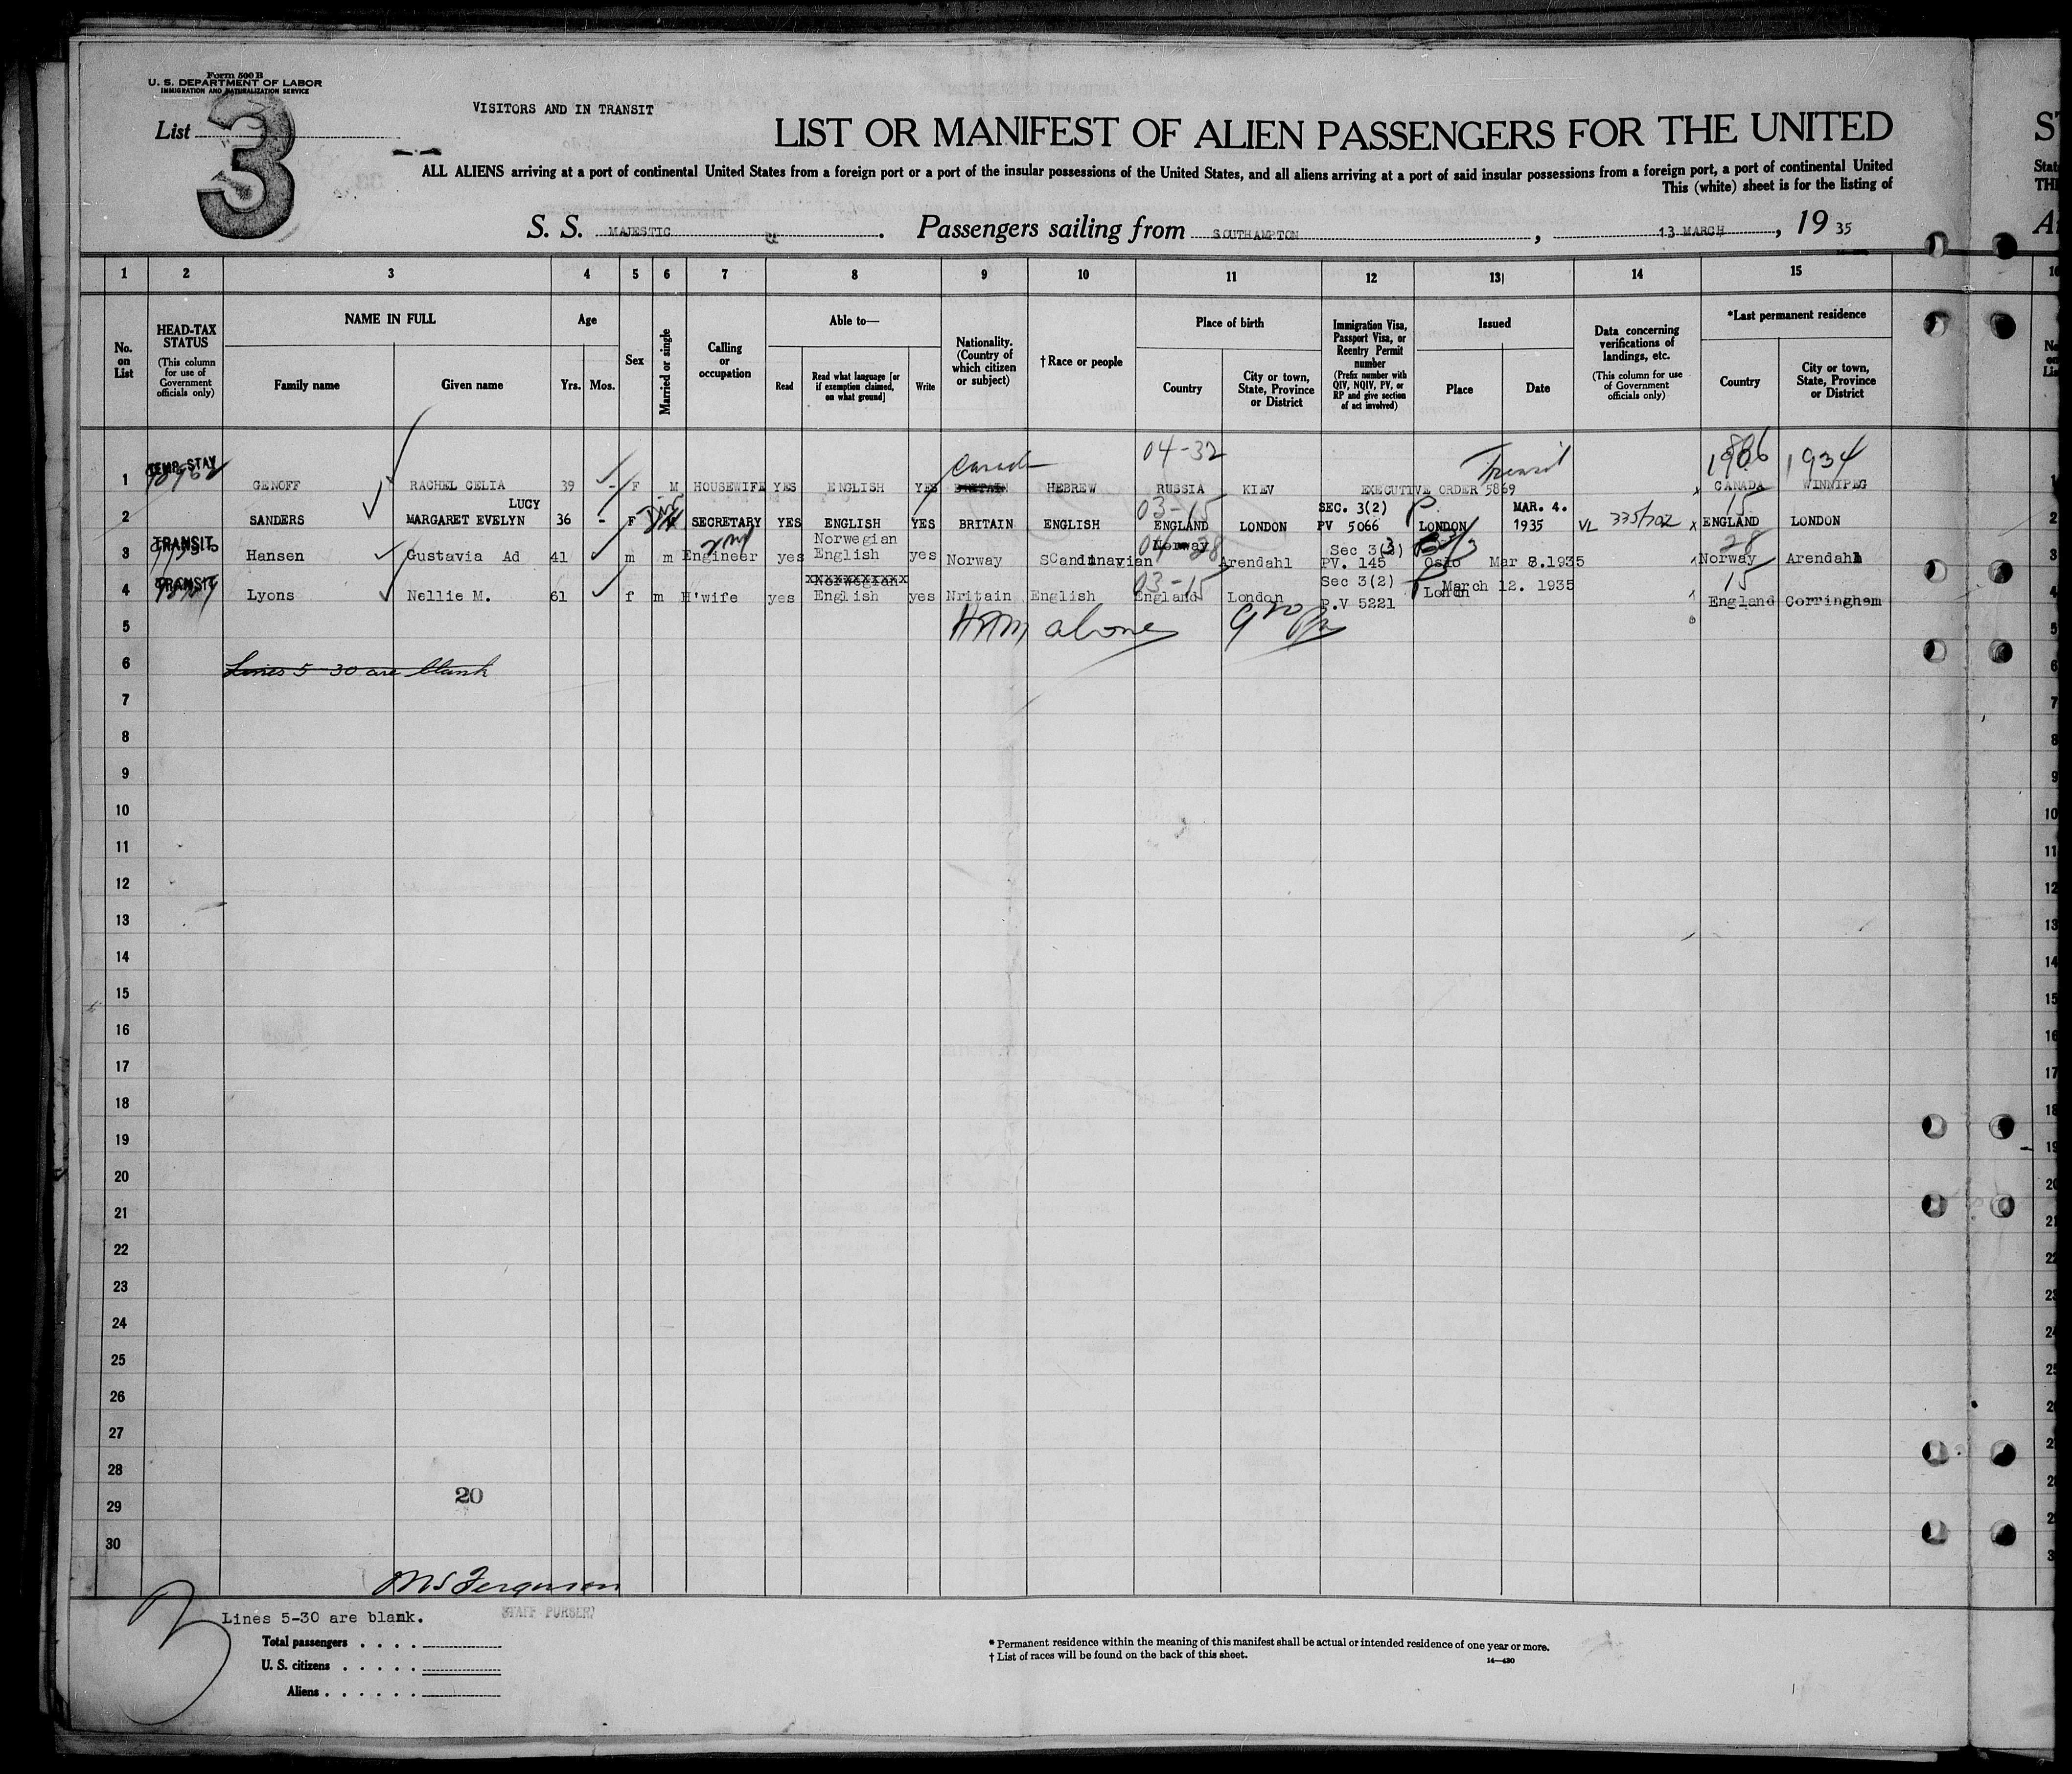 Form 500 B
U. S. DEPARTMENT OF LABOR
IMMIGRATION AND NATURALIZATION SERVICE
List 3
VISITORS AND IN TRANSIT
LIST OR MANIFEST OF ALIEN PASSENGERS FOR THE UNITED
ALL ALIENS arriving at a port of continental United States from a foreign port or a port of the insular possessions of the United States, and all aliens arriving at a port of said insular possessions from a foreign port, a port of continental United
This (white) sheet is for the listing of
S. S. MAJESTIC. Passengers sailing from SOUTHAMPTON, 13 MARCH, 1935
1 2 3 4 5 6 7 8 9 10 11 12 13 14 15
No. on List
HEAD-TAX STATUS
(This column for use of Government officials only)
NAME IN FULL
Family name
Given name
Age
Yrs.
Mos.
Sex
Married or single
Calling or occupation
Able to—
Read
Read what language [or if exemption claimed, on what ground]
Write
Nationality. (Country of which citizen or subject)
†Race or people
Place of birth
Country
City or town, State, Province or District
Immigration Visa, Passport Visa, or Reentry Permit number
(Prefix number with QIV, NQIV, PV, or RP and give section of act involved)
Issued
Place
Date
Data concerning verifications of landings, etc.
(This column for use of Government officials only)
*Last permanent residence
Country
City or town, State, Province or District
04-32 Transit 1934
TEMP. STAY Canada
1 GENOFF RACHEL CELIA 39 - F M HOUSEWIFE YES ENGLISH YES BRITAIN HEBREW RUSSIA KIEV EXECUTIVE ORDER 5869 CANADA WINNIPEG
LUCY Div 03-15 SEC. 3(2) P. MAR. 4. 15
2 SANDERS MARGARET EVELYN 36 - F SECRETARY YES ENGLISH YES BRITAIN ENGLISH ENGLAND LONDON PV 5066 LONDON 1935 VL ENGLAND LONDON
TRANSIT 2nd Norwegian Norway Sec 3(3) 28
3 Hansen Gustavia Ad 41 m m Engineer yes English yes Norway SCandinavian Arendahl PV. 145 Oslo Mar 8.1935 Norway Arendahl
TRANSIT Norwegian 03-15 Sec 3(2) March 12. 1935 15
4 Lyons Nellie M. 61 f m H'wife yes English yes Nritain English England London P.V 5221 London England Corringham
5 alone
6 Lines 5-30 are blank
7
8
9
10
11
12
13
14
15
16
17
18
19
20
21
22
23
24
25
26
27
28
29 20
30
Ferguson
STAFF PURSER
Lines 5-30 are blank.
Total passengers
U. S. citizens
Aliens
* Permanent residence within the meaning of this manifest shall be actual or intended residence of one year or more.
† List of races will be found on the back of this sheet.
14—430